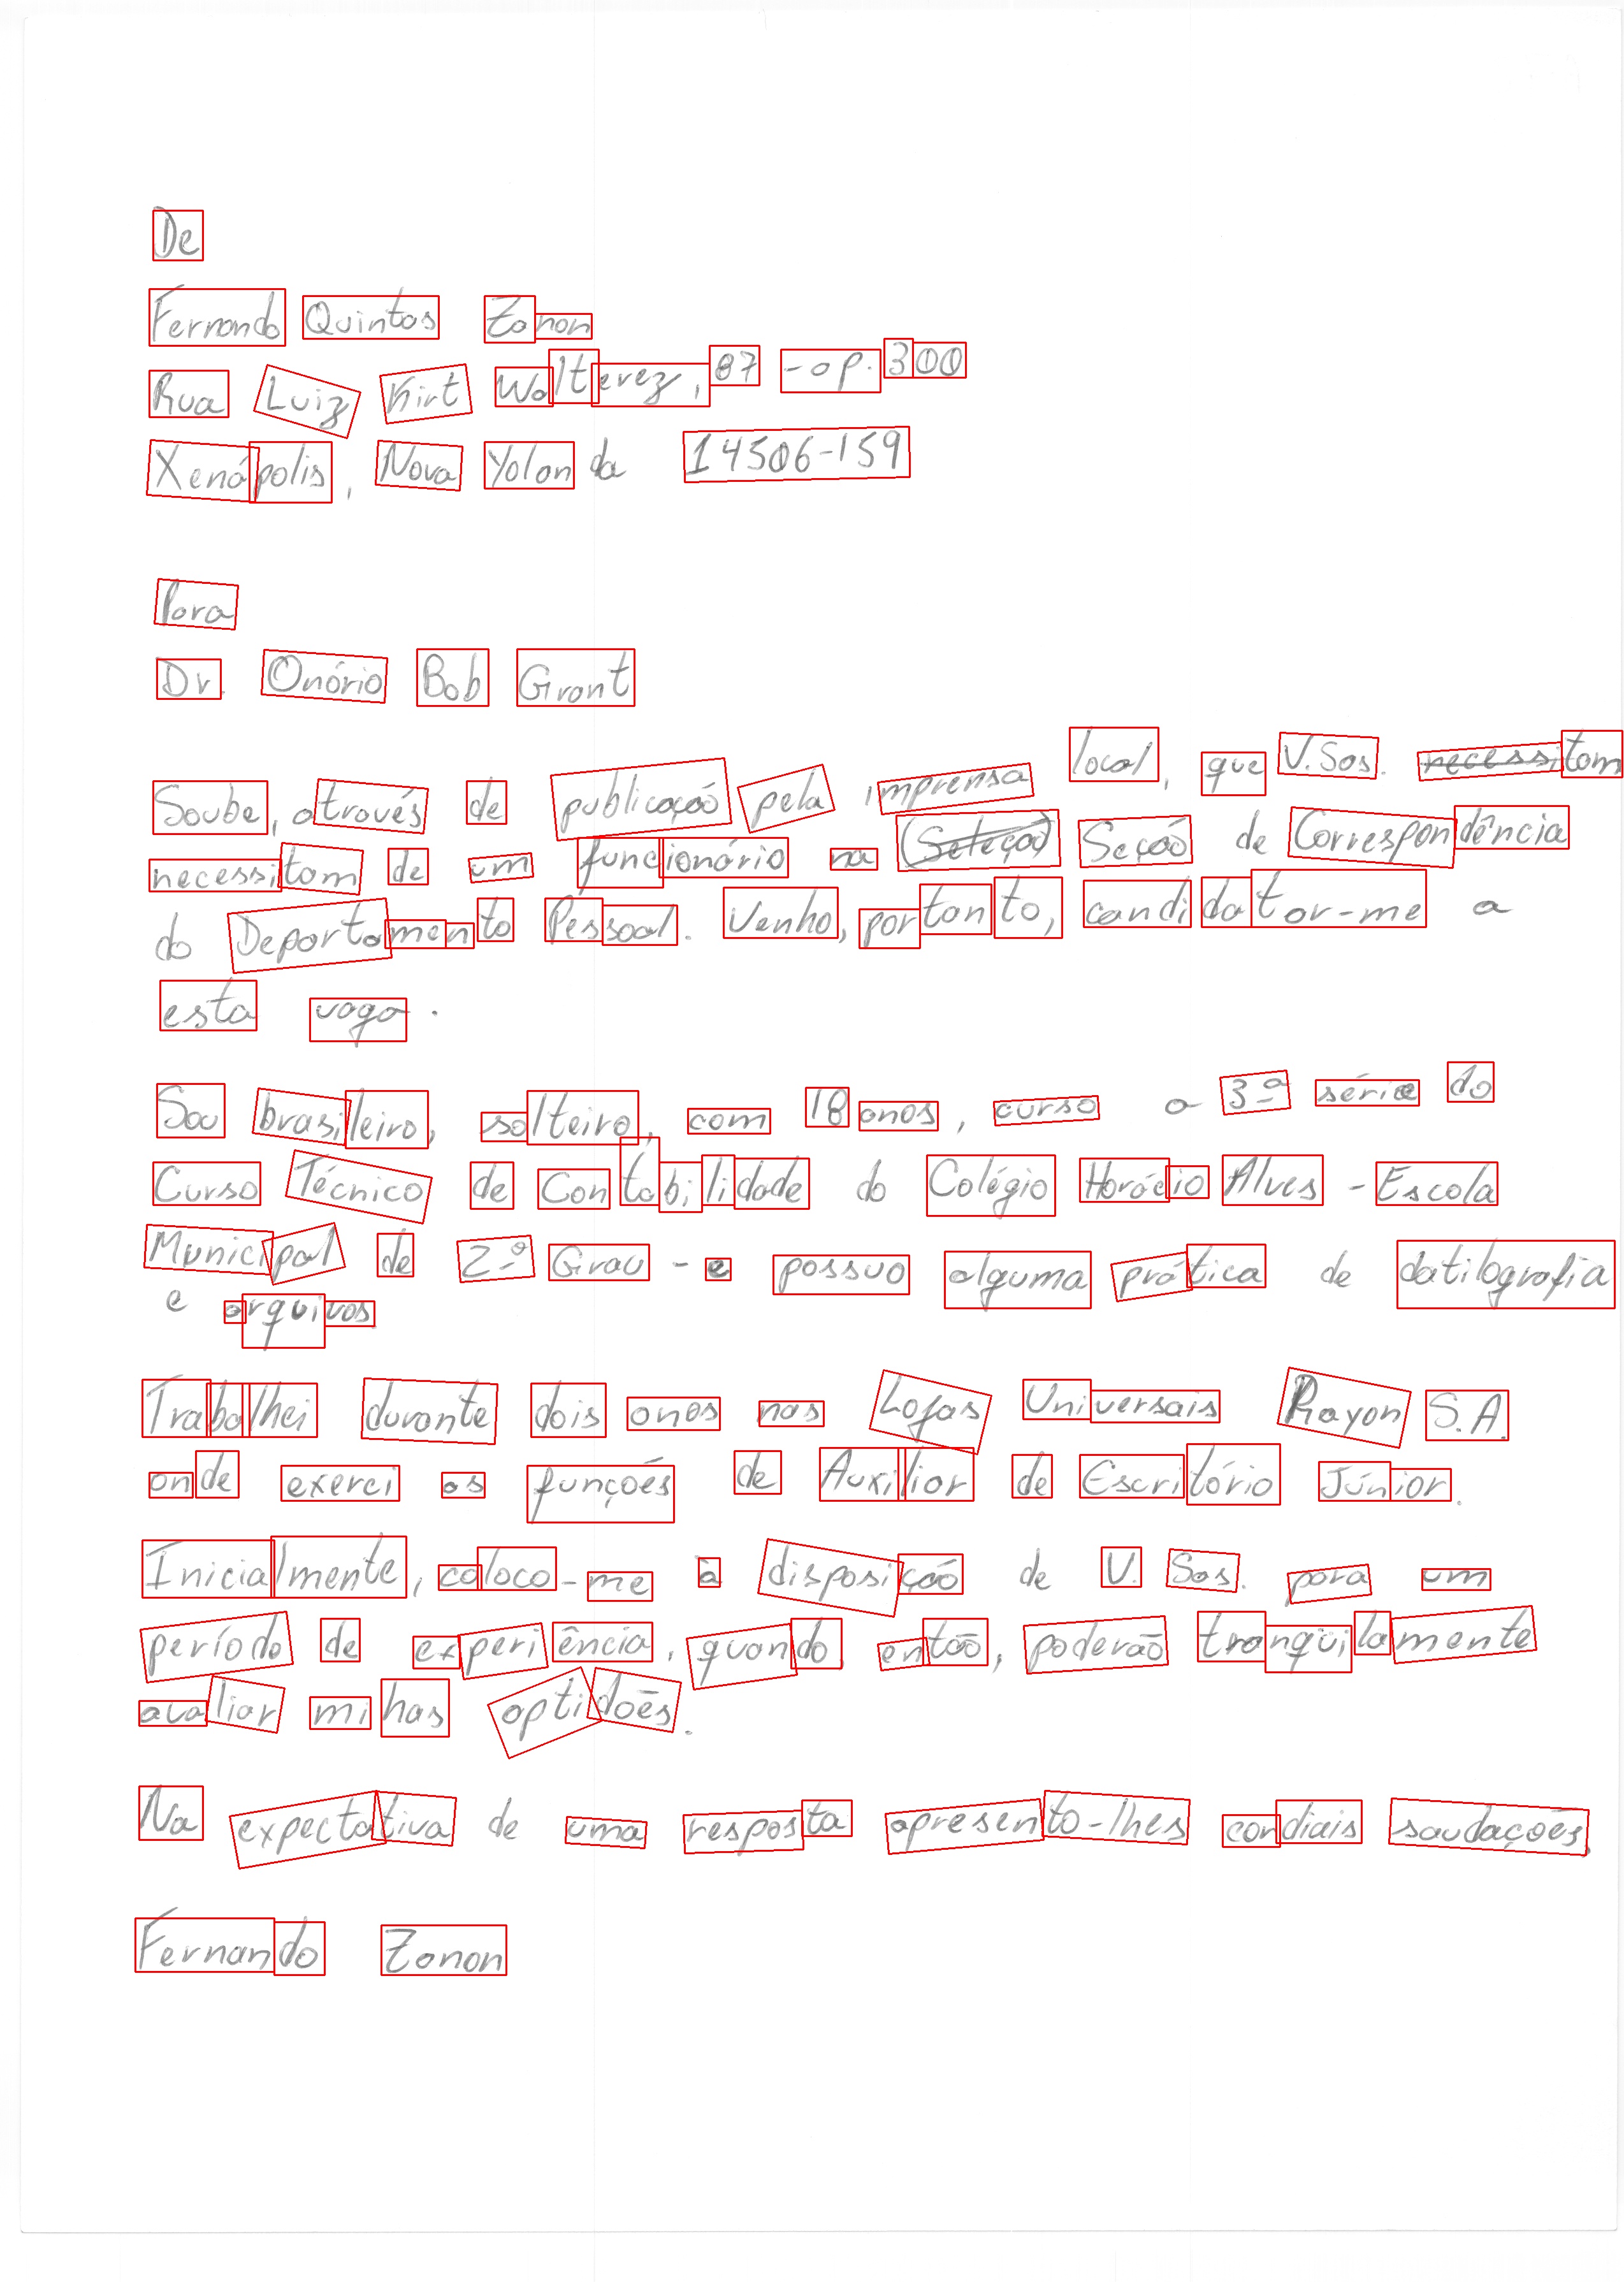 De
Fernando Quintas Zanon
Rua Luiz Kirt Walterez, 87 - ap. 300
Xenópolis, Nova Yolanda 14506-159
Para
Dr. Onório Bob Grant
Soube, através de publicação pela imprensa local, que V.Sas. necessitam
necessitam de um funcionário na (Seleção) Seção de Correspondência
do Departamento Pessoal. Venho, portanto, candidatar-me a
esta vaga.
Sou brasileiro, solteiro, com 18 anos, curso a 3ª série do
Curso Técnico de Contabilidade do Colégio Horácio Alves - Escola
Municipal de 2º Grau - e possuo alguma prática de datilografia
e arquivos.
Trabalhei durante dois anos nas Lojas Universais Rayon S.A.
onde exerci as funções de Auxiliar de Escritório Júnior.
Inicialmente, coloco-me à disposição de V. Sas. para um
período de experiência, quando então, poderão tranqüilamente
avaliar mihas aptidões.
Na expectativa de uma resposta apresento-lhes cordiais saudações.
Fernando Zanon